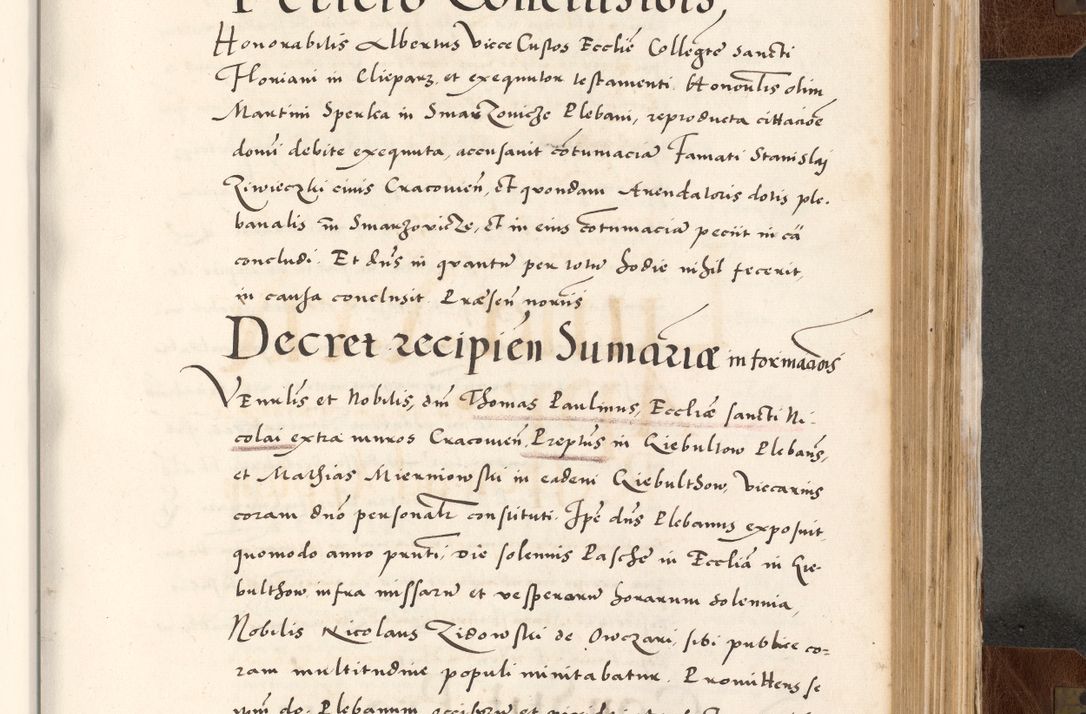 Peticio Conclusiois,
Honorabilis Albertus Vicce Custos Ecclie Collegte sancti
Floriani in Clieparz, et exequutor testamenti Honoulis olim
Martini Sperka in SmarZovicze Plebani, reproducta cittacioe
domi debite exequuta, accusavit cotumacia Famati Stanislaj
Ziwieczki civis Cracovien, et quondam Arendatoris dotis ple-
banalis in Smarzovicze, et in eius cotumacia peciit in ca
concludi. Et dns in quantu per totu hodie nihil fecerit,
in causa conclusit. Præsen noriis
Decret recipien Sumariæ informaciois
VEnrilis et Nobilis, dni Thomas Paulinus, Eccliæ sancti Ni-
colai extra muros Cracovien, Preptus in Giebultow Plebans,
et Mathias Mierniowski in eadem Giebulthow, Viccarius
coram dno personalr constituti. Ipe dns Plebanus exposuit,
quomodo anno prnti, die solennis Pasche in Ecclia in Gie-
bulthow, infra missaru et vesperaru horarum solennia,
Nobilis Nicolaus Zidowski de Owczari, sibi publice co-
ram multitudine populi minitabatur. Promittens se
ipm do. Plebanum